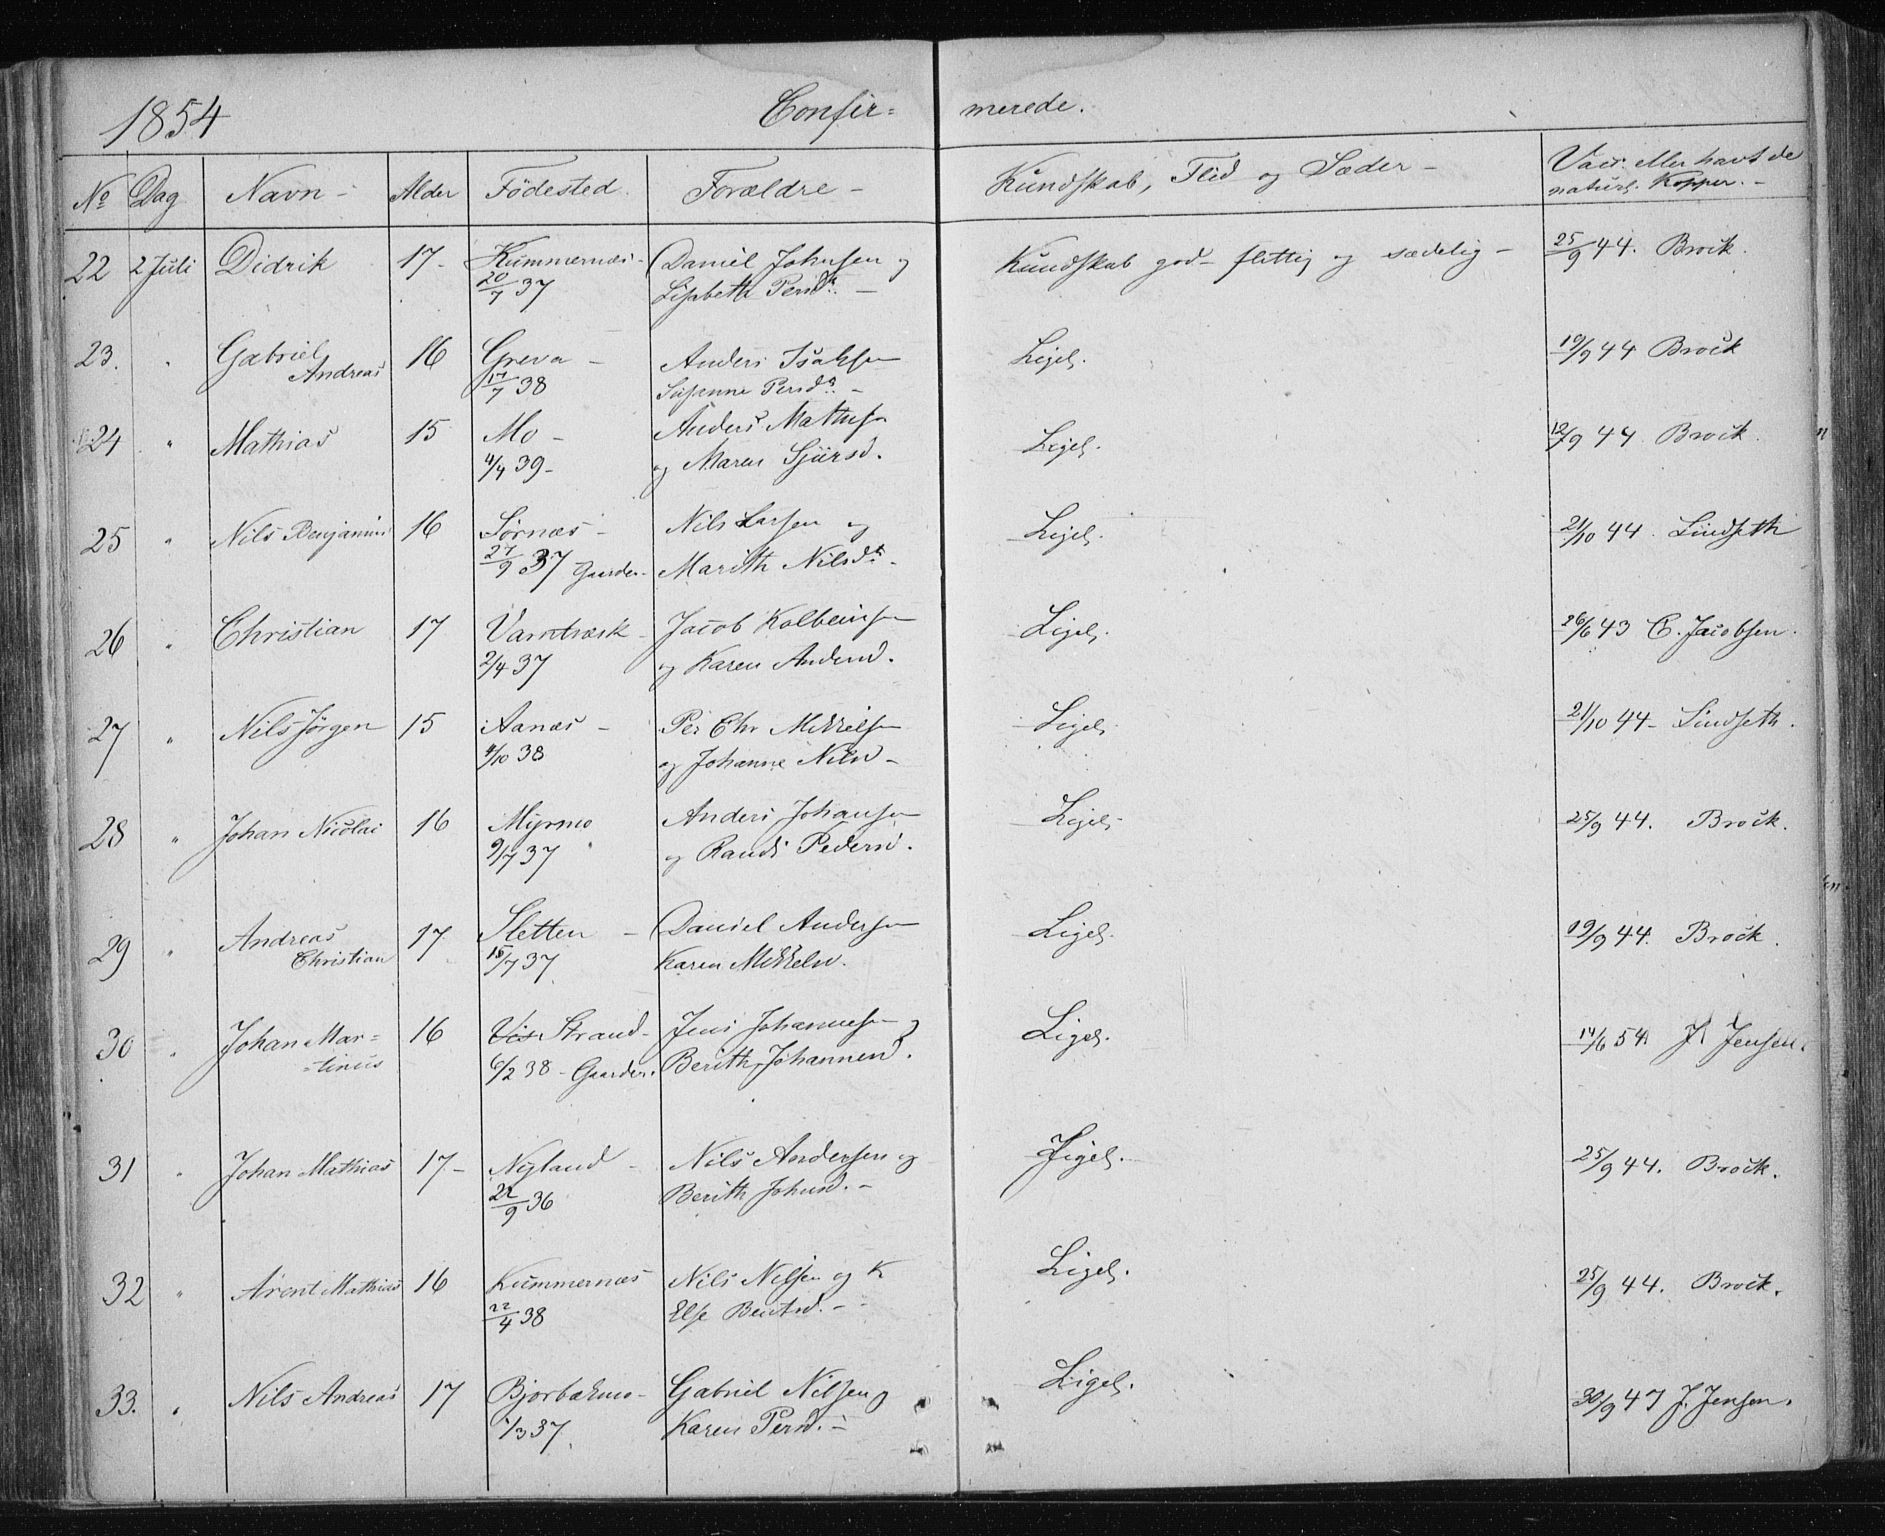 1854 Confir= merede.
No Dag Navn - Alder Födested. Forældre - Kundskab, Flid og Sæder - Vacc. eller havt de
naturl. Kopper. -
22 2 Juli Didrik 17- Kummernæs- Daniel Johnsen og Kundskab god - flittig og sædelig - 25/9 44. Brock.
20/7 37 Lisbeth Persd. -
23. " Gabriel 16 Greva - Anders Isaksen Ligel. 19/9 44 Brock
Andreas 17/7 38 Susanne Persd. -
24 " Mathias 15 Mo - Anders Mathisen Ligel. 12/9 44 Brock.
4/4 39- og Maren Sjursd.
25 " Nils Benjamin 16 Sørnæs - Nils Larsen og Ligel. 21/10 44. Lindseth
27/9 37 Gaarder- Marith Nilsd. -
26 " Christian 17 Vamtræsk - Jacob Kolbeinsen Ligel. 26/6 43 C. Jacobsen.
2/4 37 og Karen Andersd.
27 " Nils Jörgen 15 Aanæs - Per Chr Mikkelsen Ligel. 21/10 44 - Lindseth.
4/10 38 og Johanne Nilsd -
28 " Johan Nicolai 16 Myrmo Anders Johansen Ligel. 25/9 44. Brock.
9/7 37 og Randi Pedersd.
29 " Andreas 17 Sletten - Daniel Andersen Ligel. 19/9 44. Brock.
Christian 15/7 37 Karen Mikkelsd.
30 " Johan Mar= 16 Strand- Jens Johannesen og Ligel. 14/6 54 J Jensen.
=tinus 6/2 38 - Gaarder. Berith Johannesd.
31 " Johan Mathias 17- Nyland - Nils Andersen og Ligel. 25/9 44. Brock.
22/9 36 Berith Johnsd. -
32 " Arent Mathias 16 Kummernæs Nils Nilsen og K Ligel. 25/9 44. Brock.
22/4 38 Else Bentsd. -
33. " Nils Andreas 17 Bjorbækmo- Gabriel Nilsen og Ligel. 30/9 47 J. Jensen.
1/3 37. Karen Persd. -